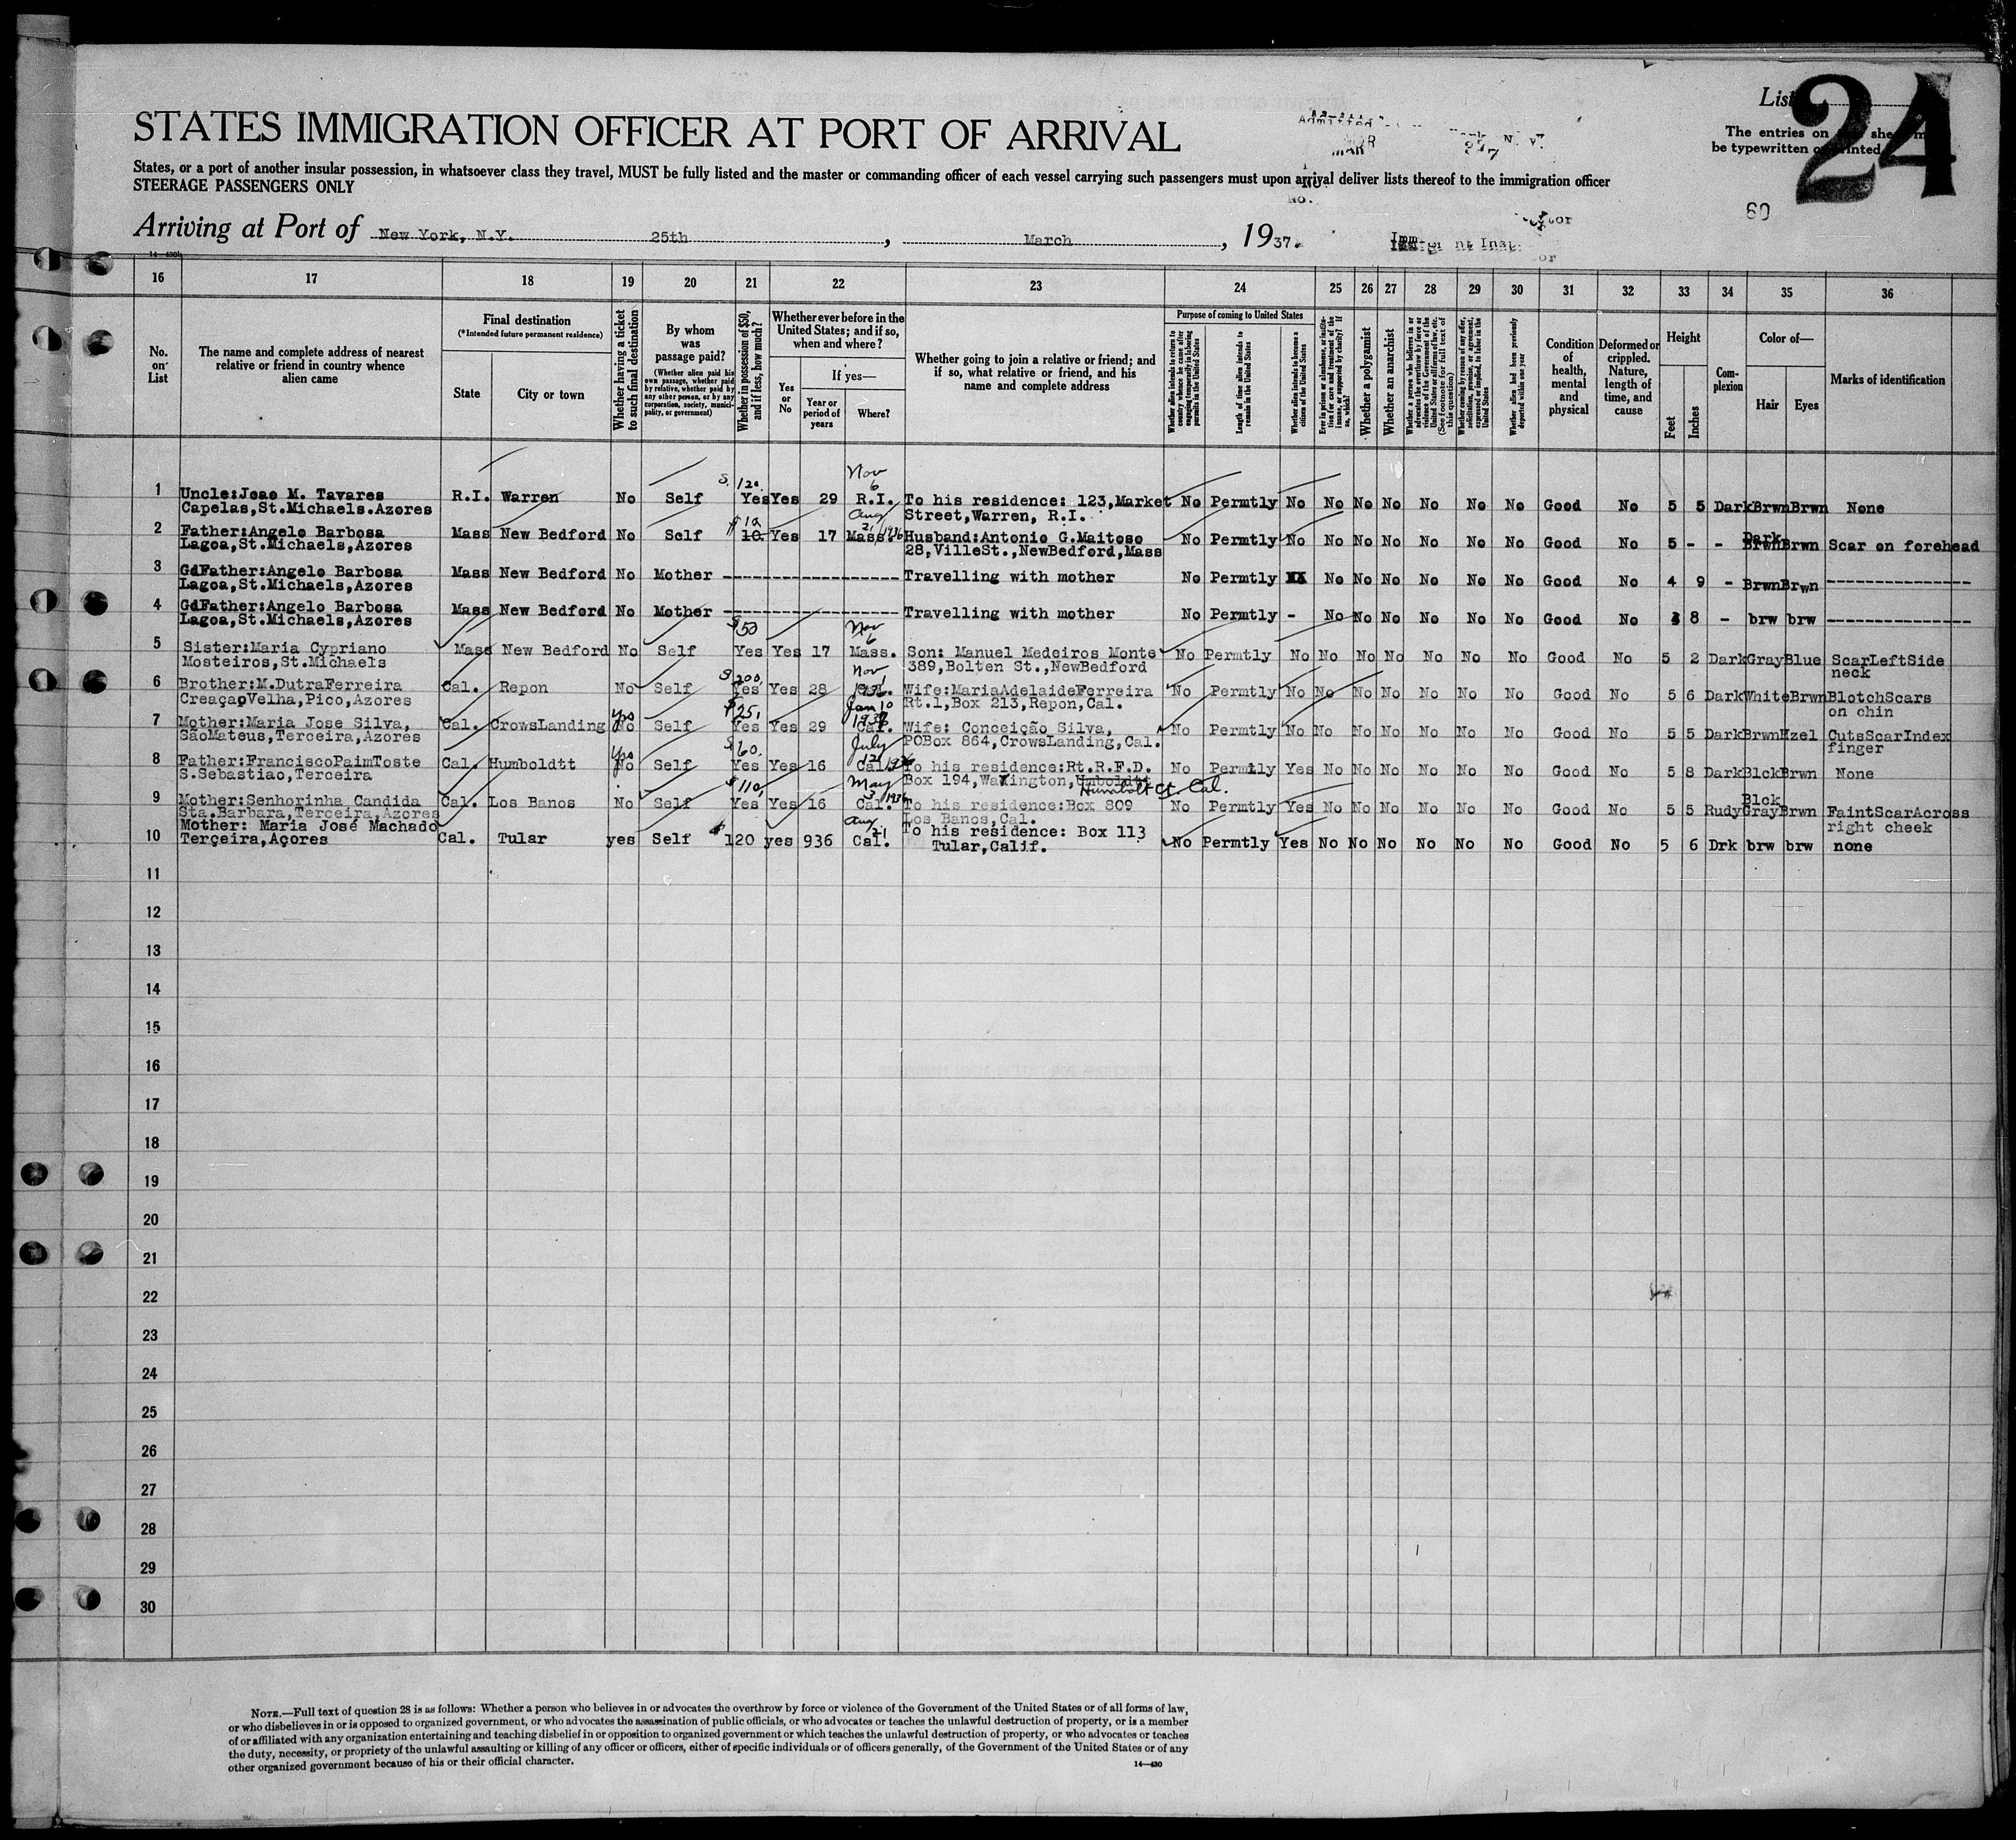 List
24
The entries on
be typewritten or printed
60
STATES IMMIGRATION OFFICER AT PORT OF ARRIVAL
States, or a port of another insular possession, in whatsoever class they travel, MUST be fully listed and the master or commanding officer of each vessel carrying such passengers must upon arrival deliver lists thereof to the immigration officer
STEERAGE PASSENGERS ONLY
Arriving at Port of New York, N.Y. 25th, March, 1937.
16 17 18 19 20 21 22 23 24 25 26 27 28 29 30 31 32 33 34 35 36
No. on List
The name and complete address of nearest relative or friend in country whence alien came
Final destination
(*Intended future permanent residence)
State
City or town
Whether having a ticket to such final destination
By whom was passage paid?
(Whether alien paid his own passage, whether paid by relative, whether paid by any other person, or by any corporation, society, municipality, or government)
Whether in possession of $50, and if less, how much?
Whether ever before in the United States; and if so, when and where?
Yes or No
If yes—
Year or period of years
Where?
Whether going to join a relative or friend; and if so, what relative or friend, and his name and complete address
Purpose of coming to United States
Whether alien intends to return to country whence he came after engaging temporarily in laboring pursuits in the United States
Length of time alien intends to remain in the United States
Whether alien intends to become a citizen of the United States
Ever in prison or almshouse, or institution for care and treatment of the insane, or supported by charity? If so, which?
Whether a polygamist
Whether an anarchist
Whether a person who believes in or advocates the overthrow by force or violence of the Government of the United States or all forms of law, etc. (See footnote for full text of this question)
Whether coming by reason of any offer, solicitation, promise, or agreement, expressed or implied, to labor in the United States
Whether alien had been previously deported within one year
Condition of health, mental and physical
Deformed or crippled. Nature, length of time, and cause
Height
Feet
Inches
Complexion
Color of—
Hair
Eyes
Marks of identification
$ 120. Nov 6
1 Uncle:Joao M. Tavares R.I. Warren No Self Yes Yes 29 R.I. To his residence: 123,Market No Permtly No No No No No No No Good No 5 5 Dark Brwn Brwn None
Capelas,St.Michaels.Azores Street,Warren, R.I.
$ 10 Aug 21 1936
2 Father:Angelo Barbosa Mass New Bedford No Self 10. Yes 17 Mass. Husband:Antonio G.Maitoso No Permtly No No No No No No No Good No 5 - - Dark Brwn Brwn Scar on forehead
Lagoa,St.Michaels,Azores 28,VilleSt.,NewBedford,Mass
3 GdFather:Angelo Barbosa Mass New Bedford No Mother -------------------- Travelling with mother No Permtly No No No No No No Good No 4 9 - Brwn Brwn ----------------
Lagoa,St.Michaels,Azores
4 GdFather:Angelo Barbosa Mass New Bedford No Mother -------------------- Travelling with mother No Permtly - No No No No No No Good No 8 - brw brw ----------------
Lagoa,St.Michaels,Azores
$50 Nov 6
5 Sister:Maria Cypriano Mass New Bedford No Self Yes Yes 17 Mass. Son: Manuel Medeiros Monte No Permtly No No No No No No No Good No 5 2 Dark Gray Blue ScarLeftSide
Mosteiros,St.Michaels 389,Bolten St.,NewBedford neck
$200, Nov 1 1936
6 Brother:M.DutraFerreira Cal. Repon No Self Yes Yes 28 Wife:MariaAdelaideFerreira No Permtly No No No No No No No Good No 5 6 Dark White Brwn BlotchScars
CreaçaoVelha,Pico,Azores Rt.1,Box 213,Repon,Cal. on chin
yes $25, Jan 10
7 Mother:Maria Jose Silva, Cal. CrowsLanding No Self Yes Yes 29 Cal. Wife: Conceição Silva, No Permtly No No No No No No No Good No 5 5 Dark Brwn Hzel CutsScarIndex
SãoMateus,Terceira,Azores POBox 864,CrowsLanding,Cal. finger
yes $60. July 21 1936
8 Father:FranciscoPaimToste Cal. Humboldtt No Self Yes Yes 16 Cal. To his residence:Rt.R.F.D. No Permtly Yes No No No No No No Good No 5 8 Dark Blck Brwn None
S.Sebastiao,Terceira Box 194,Waxington,Umboldtt Humbolt Ct. Cal.
$110, May 3 1936
9 Mother:Senhorinha Candida Cal. Los Banos No Self Yes Yes 16 Cal. To his residence:Box 809 No Permtly Yes No No No No No No Good No 5 5 Rudy Blck Gray Brwn FaintScarAcross
Sta.Barbara,Terceira,Azores Los Banos,Cal. right cheek
$ Aug 21
10 Mother: Maria José Machado Cal. Tular yes Self 120 yes 936 Cal. To his residence: Box 113 No Permtly Yes No No No No No No Good No 5 6 Drk brw brw none
Terçeira,Açores Tular,Calif.
11
12
13
14
15
16
17
18
19
20
21
22
23
24
25
26
27
28
29
30
NOTE.—Full text of question 28 is as follows: Whether a person who believes in or advocates the overthrow by force or violence of the Government of the United States or of all forms of law,
or who disbelieves in or is opposed to organized government, or who advocates the assassination of public officials, or who advocates or teaches the unlawful destruction of property, or is a member
of or affiliated with any organization entertaining and teaching disbelief in or opposition to organized government or which teaches the unlawful destruction of property, or who advocates or teaches
the duty, necessity, or propriety of the unlawful assaulting or killing of any officer or officers, either of specific individuals or of officers generally, of the Government of the United States or of any
other organized government because of his or their official character.
14—430